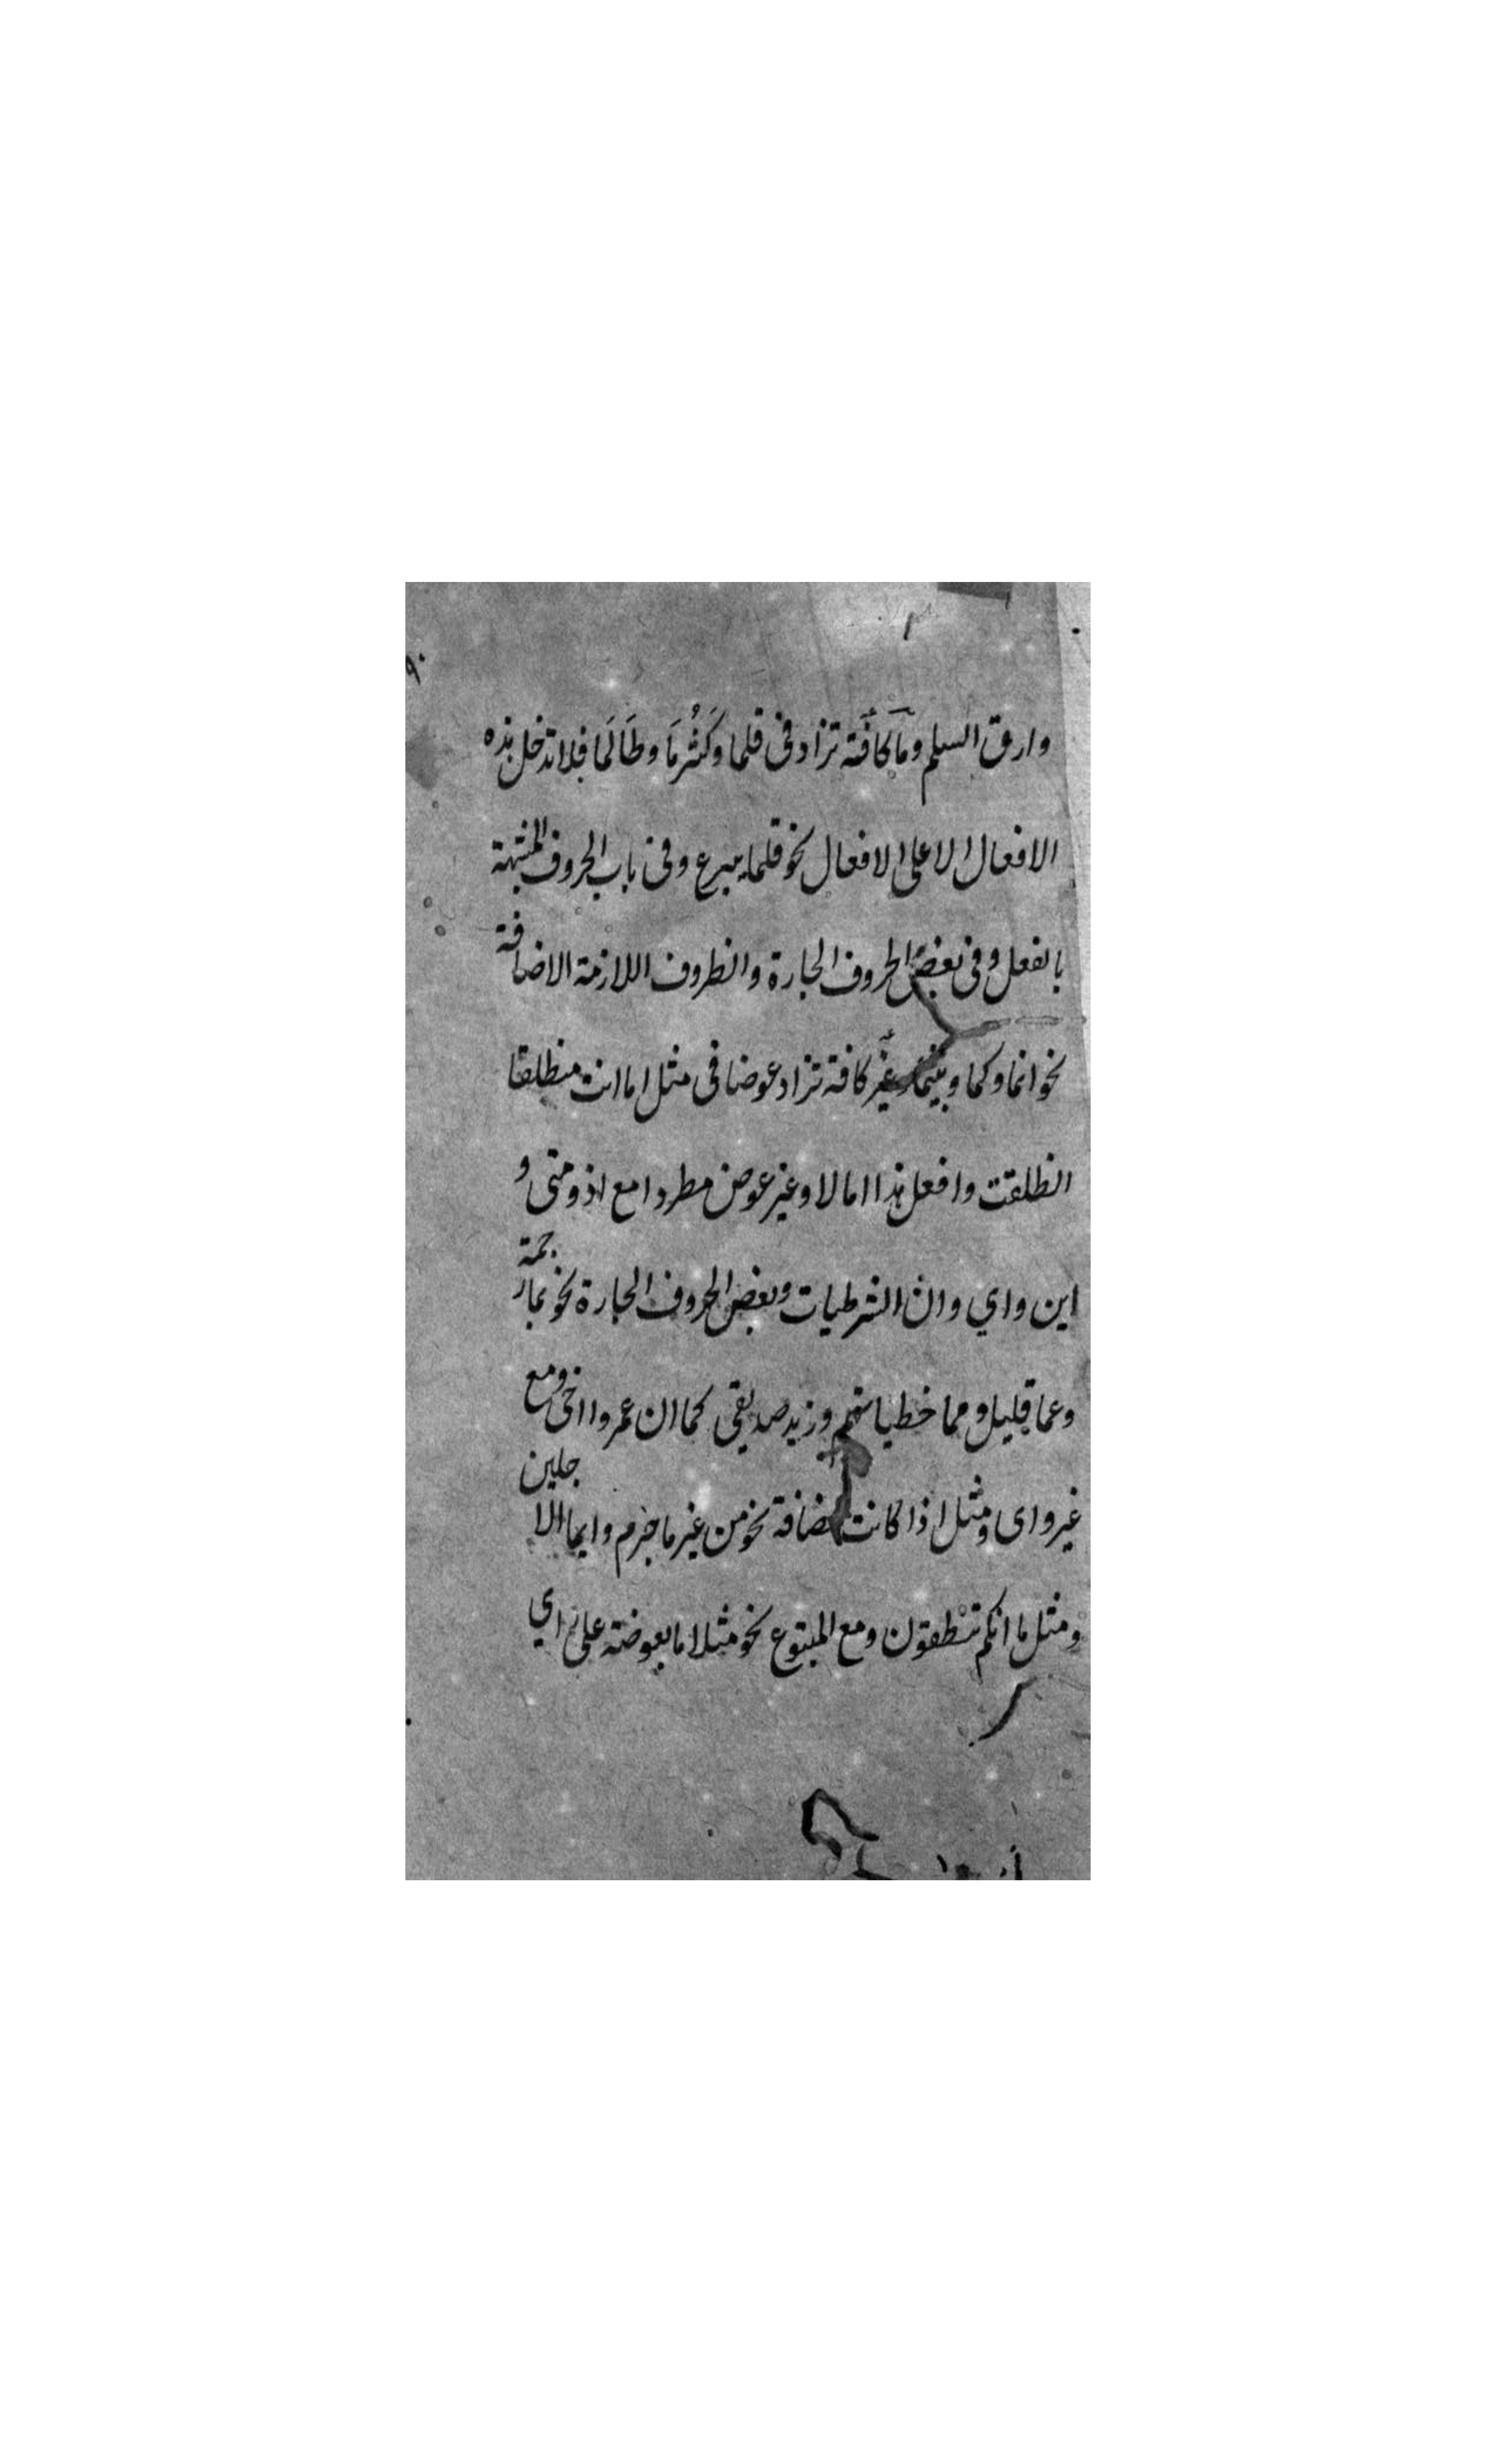 ٩٠
وارق السلم وما كافة تزاد فى قلما وكَثُرمَا وطَالَمَا فلا تدخل هذه
الافعال الا على الافعال نحو قلما يبرع وفى باب الحروف المشبهة
بالفعل وفى بعض الحروف الجارة والظروف اللازمة الاضافة
نحو انما وكما وبينما وغير كافة تزاد عوضا فى مثل اما انت منطلقا
انطلقت وافعل هذا اما لا وغير عوض مطردا مع اذ ومتى و
اين واي وان الشرطيات وبعض الحروف الجارة نحو بما رحمة
وعما قليل ومما خطياتهم وزيد صديقى كما ان عمروا اخى ومع
غير واى ومثل اذا كانت مضافة نحو من غير ما جرم وايما الاجلين
ومثل ما انكم تنطقون ومع المتبوع نحو مثلا ما بعوضة على راي